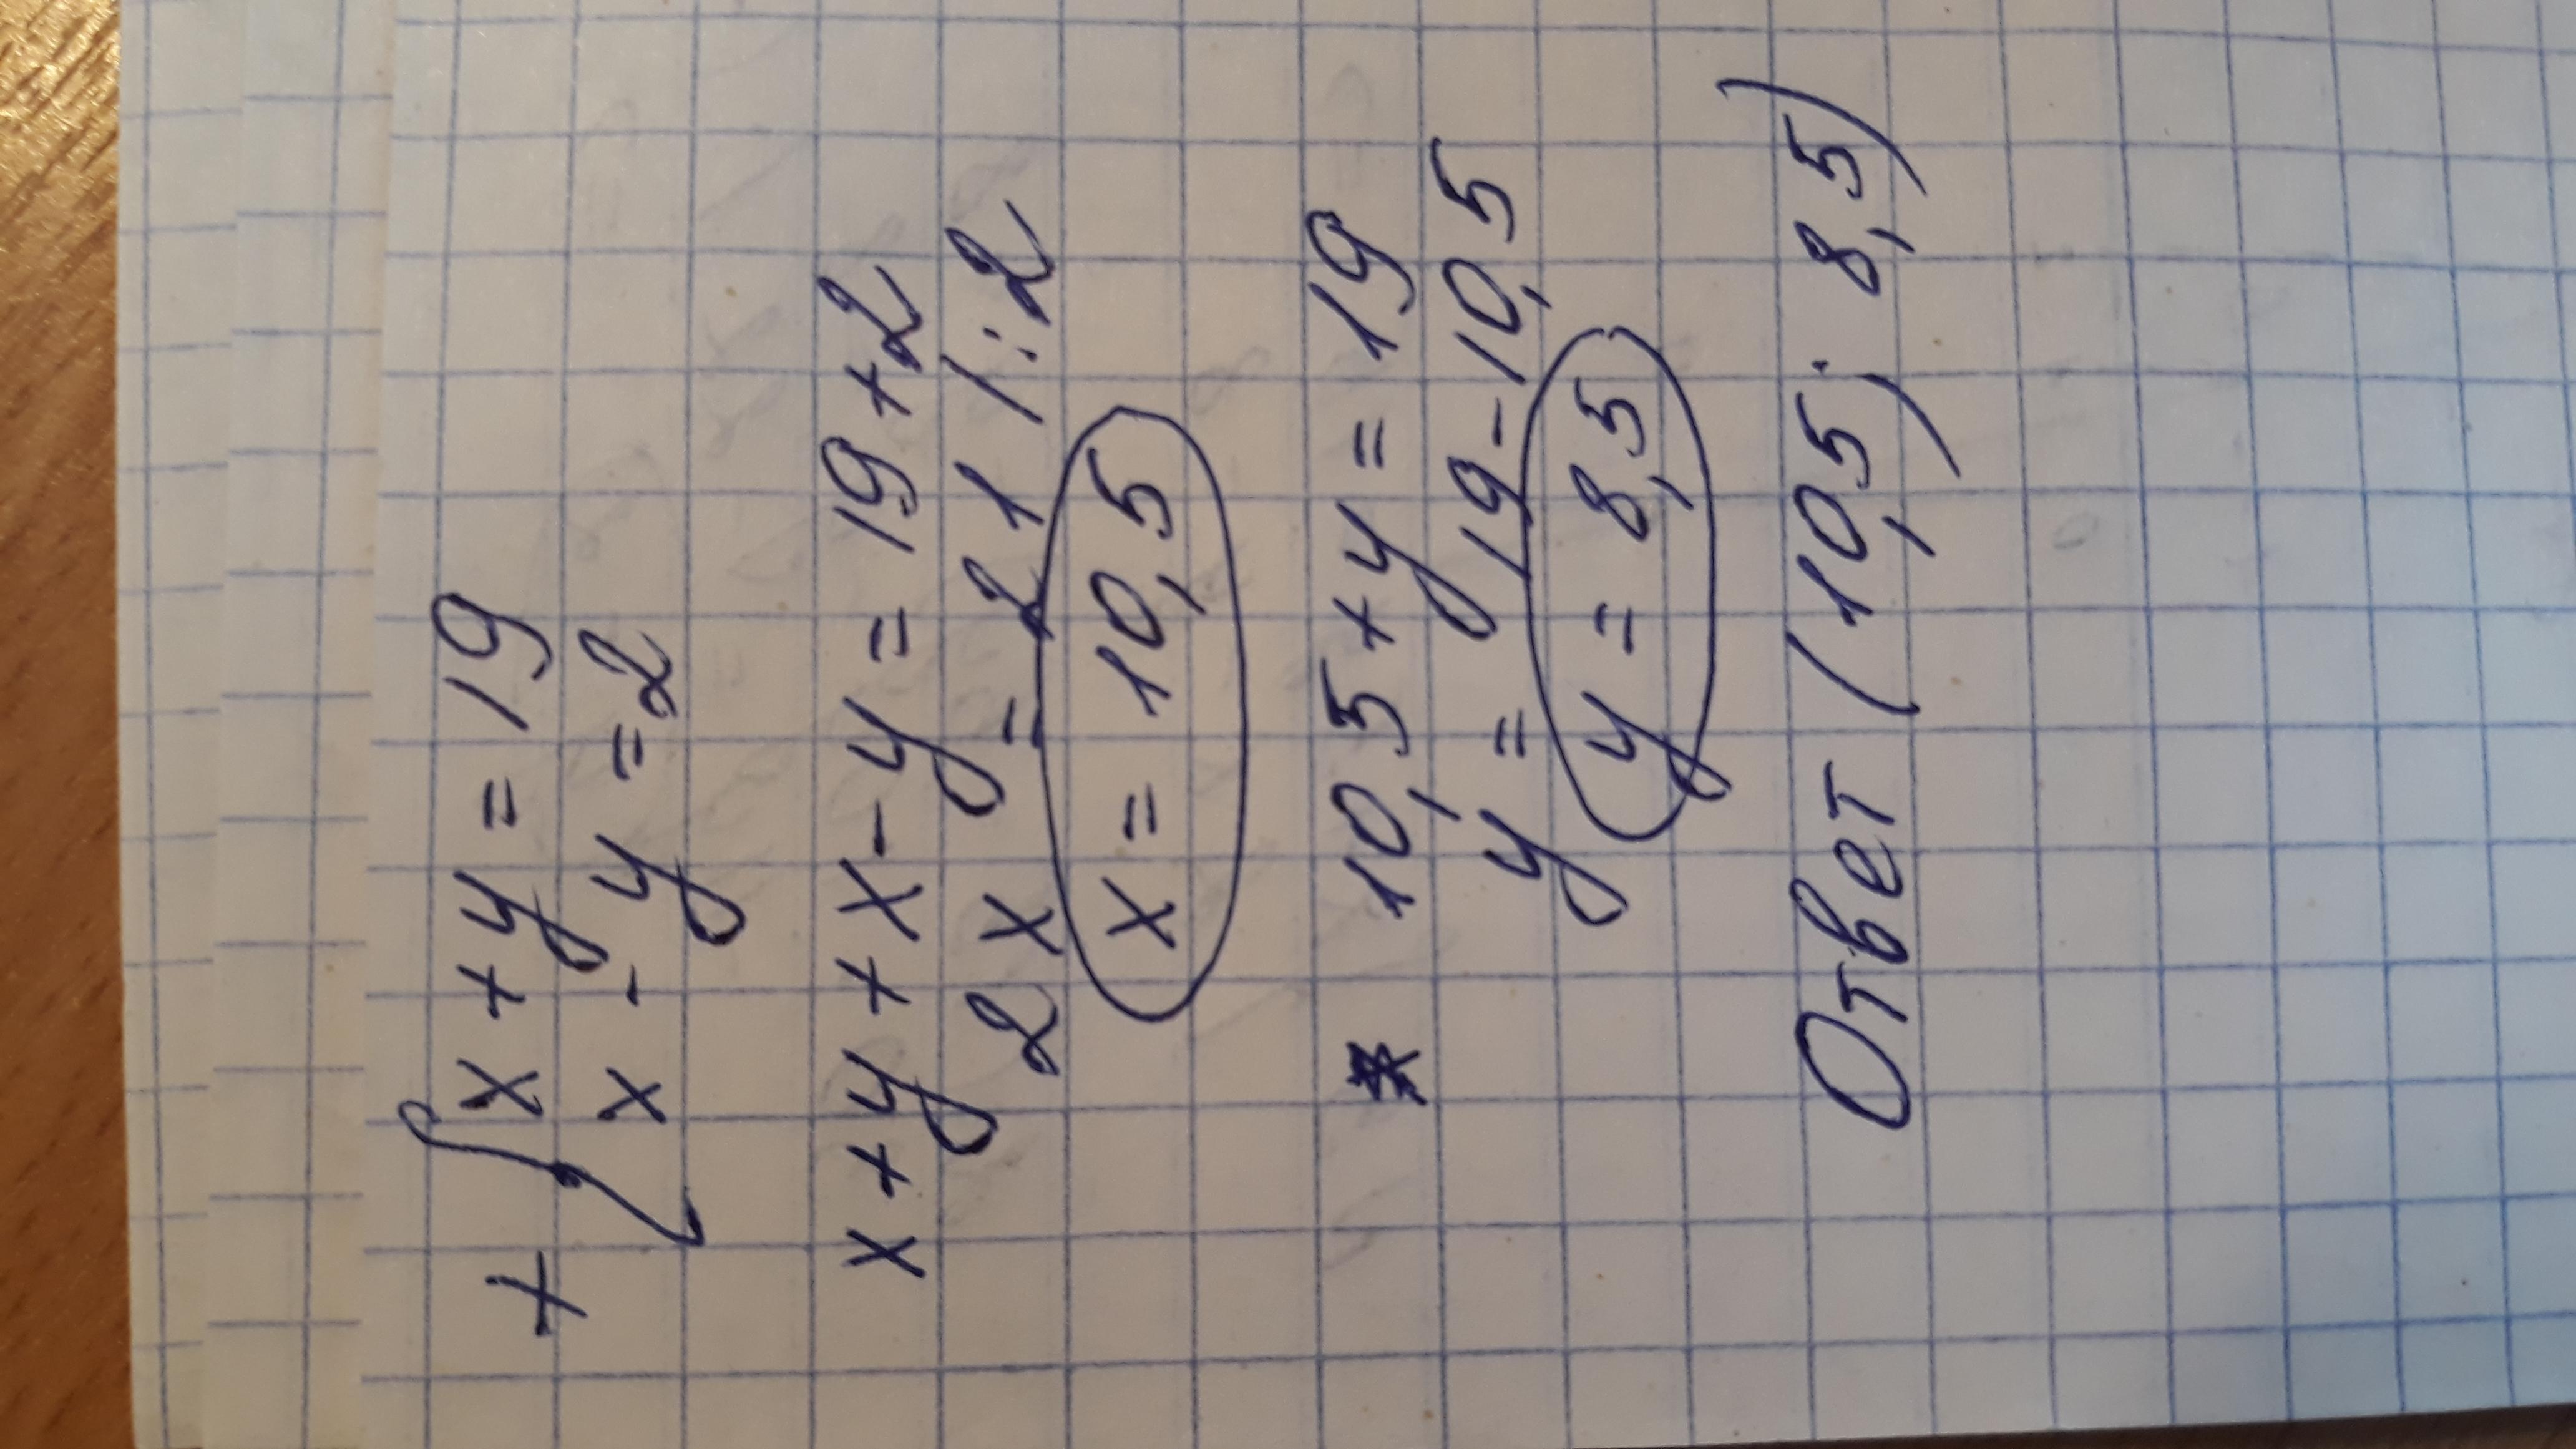 + { x + y = 19
x - y = 2
x + y + x - y = 19 + 2
2x = 21 | : 2
x = 10,5
* 10,5 + y = 19
y = 19 - 10,5
y = 8,5
Ответ (10,5; 8,5)